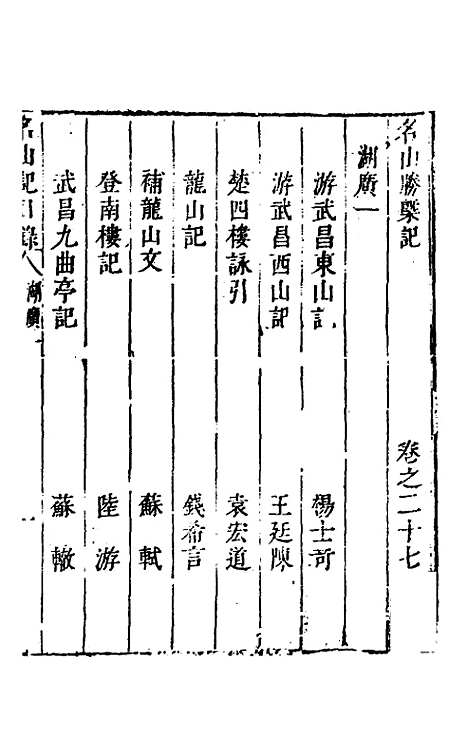 名山勝槩記 卷之二十七
湖廣一
游武昌東山記 楊士奇
游武昌西山記 王廷陳
楚四樓詠引 袁宏道
龍山記 錢希言
補龍山文 蘇軾
登南樓記 陸游
武昌九曲亭記 蘇轍
名山記目錄 湖廣一 一